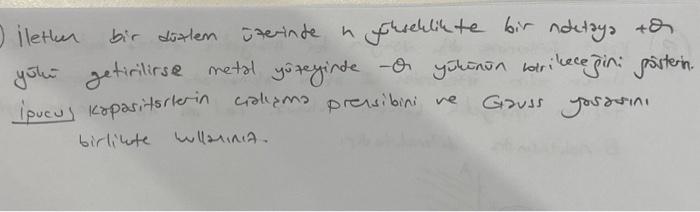 ) İletken bir düzlem üzerinde h yükseklikte bir noktaya +Q
yükü getirilirse metal yüzeyinde -Q yükünün birikeceğini gösterin.
İpucu; Kapasitörlerin çalışma prensibini ve Gauss yasasını
birlikte kullanınız.